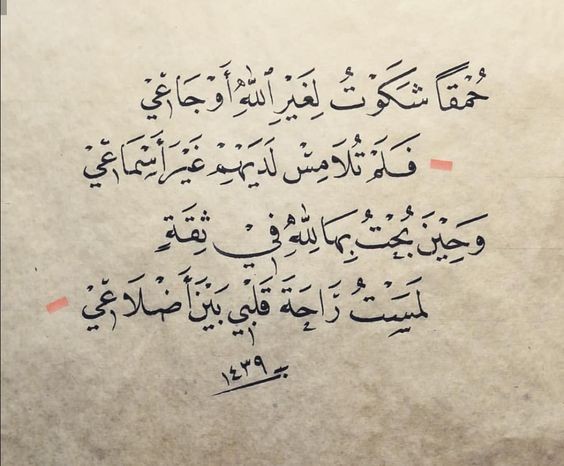 حُمْقًا شَكَوْتُ لِغَيْرِ اللّٰهِ أَوْجَاعِيْ
فَلَمْ تُلَامِسْ لَدَيْهِمْ غَيْرَ أَسْمَاعِيْ
وَحِيْنَ بُحْتُ بِهَا لِلّٰهِ فِيْ ثِقَةٍ
لَمَسْتُ رَاحَةَ قَلْبِيْ بَيْنَ أَضْلَاعِيْ
١٤٣٩